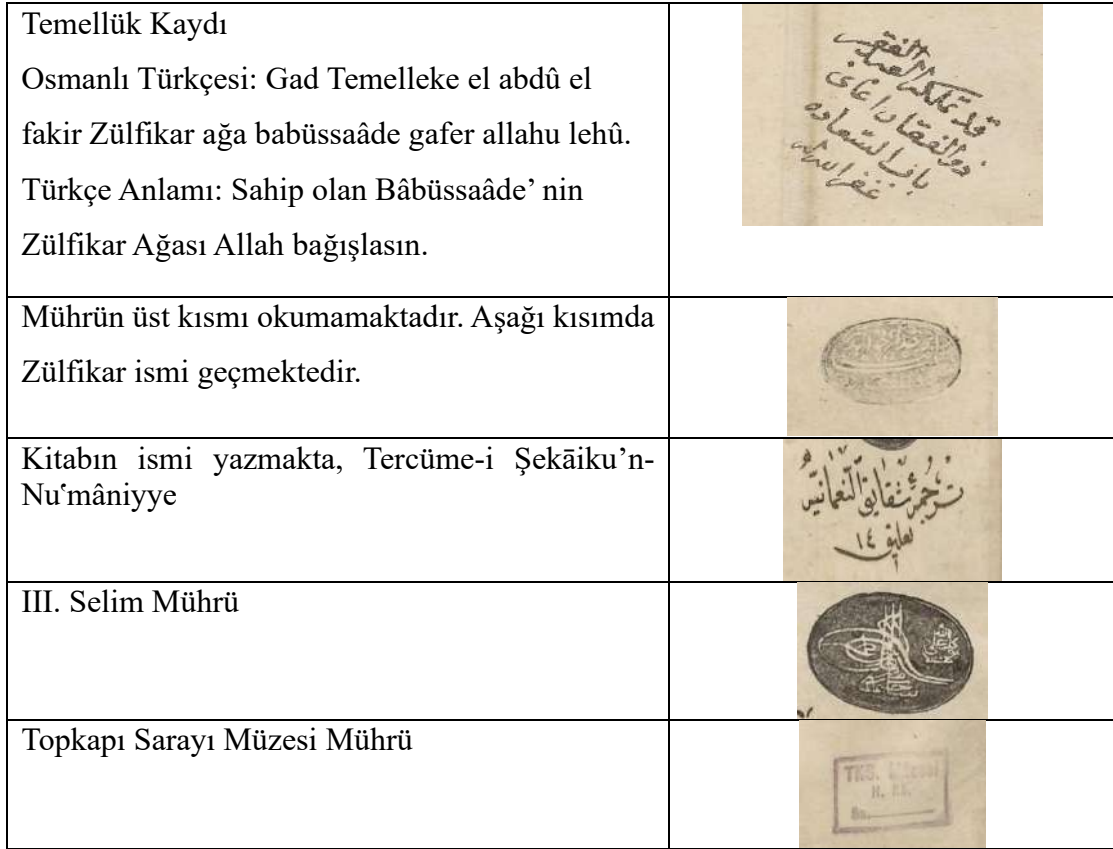 Temellük Kaydı
Osmanlı Türkçesi: Gad Temelleke el abdû el
fakir Zülfikar ağa babüssaâde gafer allahu lehû.
Türkçe Anlamı: Sahip olan Bâbüssaâde’ nin
Zülfikar Ağası Allah bağışlasın.
قد تملكه العبد الفقير
ذو الفقار اغاى
باب السعاده
غفر الله له
Mührün üst kısmı okumamaktadır. Aşağı kısımda
Zülfikar ismi geçmektedir.
Kitabın ismi yazmakta, Tercüme-i Şekāiku’n-
Nu‘mâniyye
ترجمۀ شقايق النعمانيه
تعليق ١٤
III. Selim Mührü
Topkapı Sarayı Müzesi Mührü
TKS. Müzesi